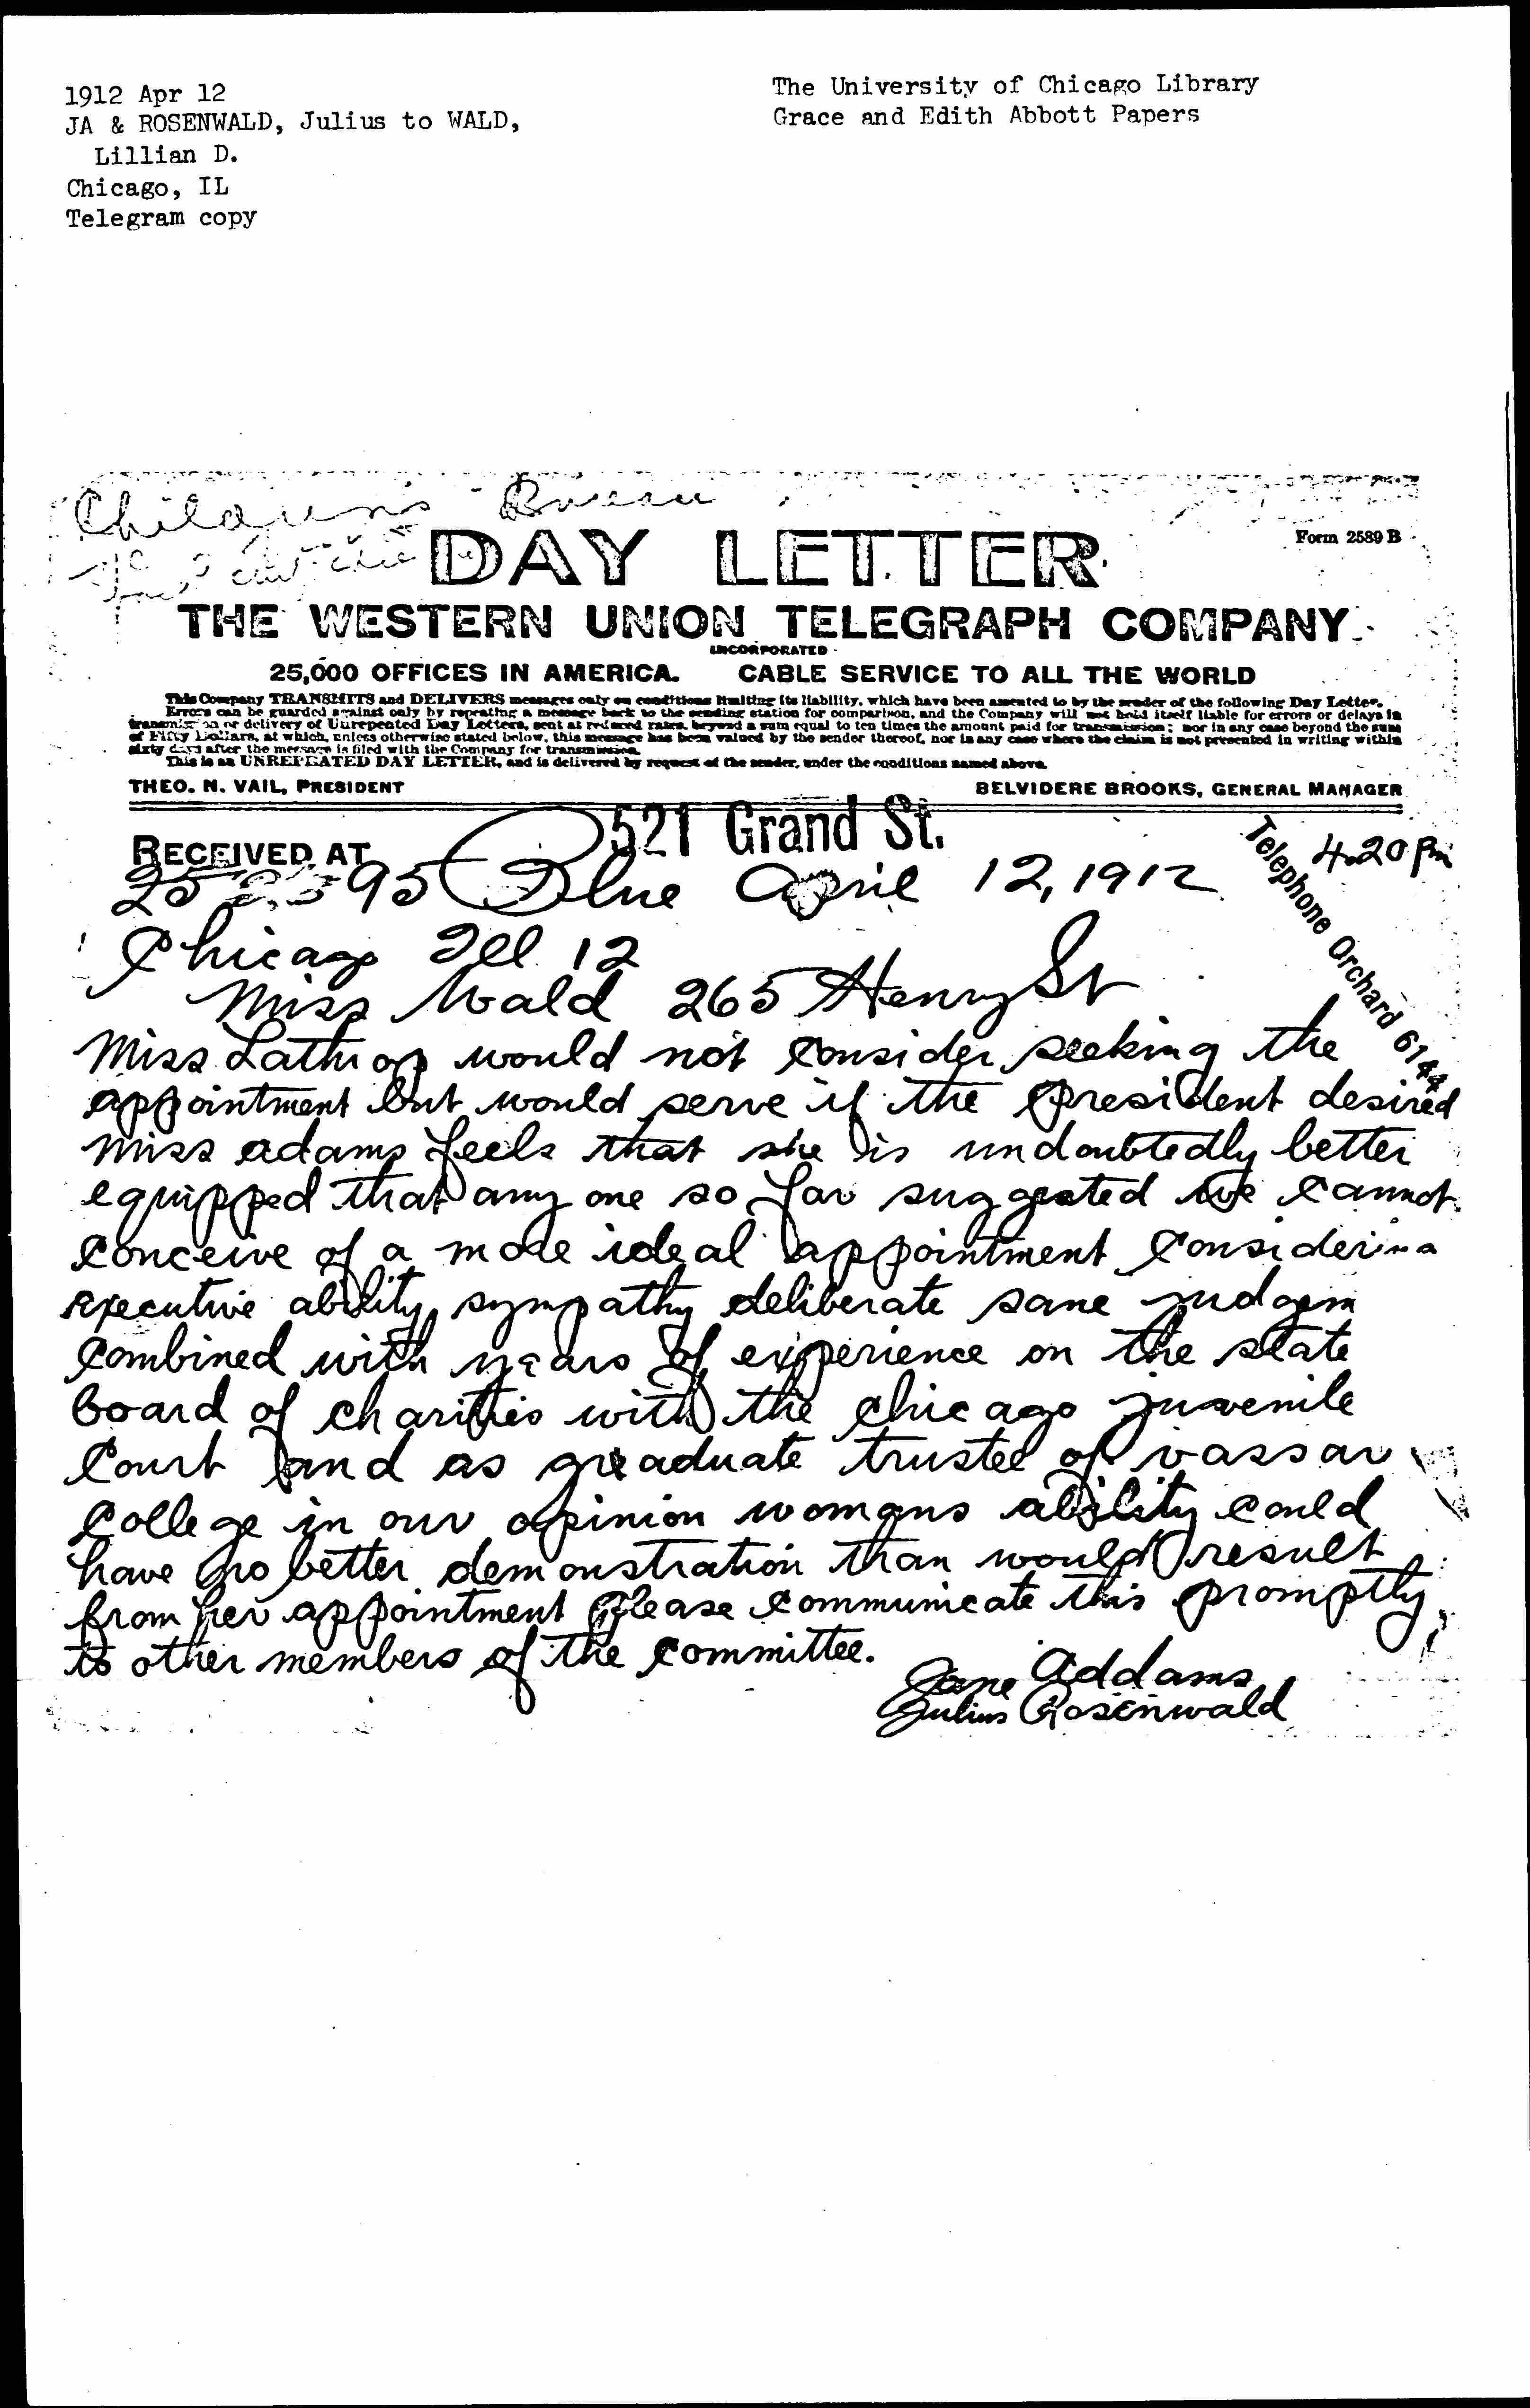 1912 Apr 12
JA & ROSENWALD, Julius to WALD,
Lillian D.
Chicago, IL
Telegram copy
The University of Chicago Library
Grace and Edith Abbott Papers
Childrens Bureau
Form 2589 B
DAY LETTER
THE WESTERN UNION TELEGRAPH COMPANY
INCORPORATED
25,000 OFFICES IN AMERICA. CABLE SERVICE TO ALL THE WORLD
This Company TRANSMITS and DELIVERS messages only on conditions limiting its liability, which have been assented to by the sender of the following Day Letter.
Errors can be guarded against only by repeating a message back to the sending station for comparison, and the Company will not hold itself liable for errors or delays in
transmission or delivery of Unrepeated Day Letters, sent at reduced rates, beyond a sum equal to ten times the amount paid for transmission; nor in any case beyond the sum
of Fifty Dollars, at which, unless otherwise stated below, this message has been valued by the sender thereof, nor in any case where the claim is not presented in writing within
sixty days after the message is filed with the Company for transmission.
This is an UNREPEATED DAY LETTER, and is delivered by request of the sender, under the conditions named above.
THEO. N. VAIL, PRESIDENT BELVIDERE BROOKS, GENERAL MANAGER
RECEIVED AT 521 Grand St.
Telephone Orchard 6144
4.20 Pm
95 Blue April 12, 1912
Chicago Ill 12
Miss Wald 265 Henry St
Miss Lathrop would not consider seeking the
appointment but would serve if the president desired
miss adams feels that she is undoubtedly better
equipped that any one so far suggested we cannot
conceive of a more ideal appointment considering
executive ability sympathy deliberate sane judgem
combined with years of experience on the state
board of charities with the chicago juvenile
court and as graduate trustee of vassar
college in our opinion womans ability could
have no better demonstration than would result
from her appointment please communicate this promptly
to other members of the committee.
Jane Addams
Julius Rosenwald